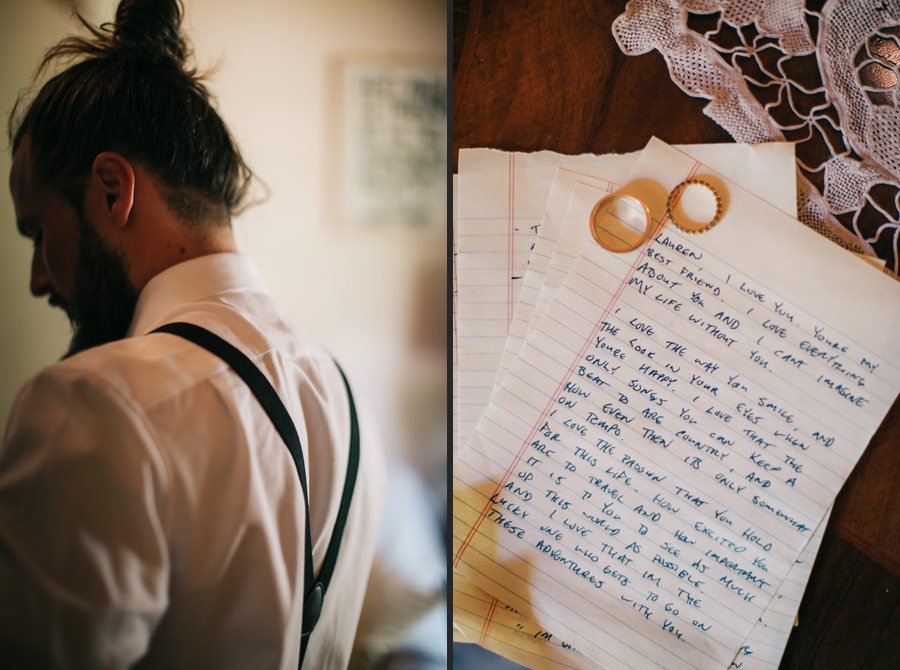 LAUREN, I LOVE YOU. YOU'RE MY
BEST FRIEND. I LOVE EVERYTHING
ABOUT YOU AND I CANT IMAGINE
MY LIFE WITHOUT YOU.
I LOVE THE WAY YOU SMILE, AND
THE LOOK IN YOUR EYES WHEN
YOURE HAPPY. I LOVE THAT THE
ONLY SONGS YOU CAN KEEP A
BEAT TO ARE COUNTRY, AND
HOW EVEN THEN ITS ONLY SOMEWHAT
ON TEMPO.
I LOVE THE PASSION THAT YOU HOLD
FOR THIS LIFE. HOW EXCITED YOU
ARE TO TRAVEL AND HOW IMPORTANT
IT IS TO YOU TO SEE AS MUCH
OF THIS WORLD AS POSSIBLE.
AND I LOVE THAT IM THE
LUCKY ONE WHO GETS TO GO ON
THESE ADVENTURES WITH YOU.